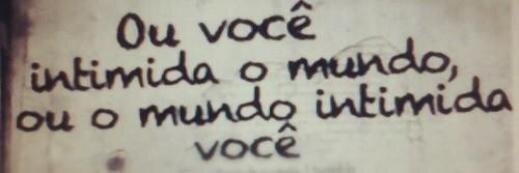 Ou você
intimida o mundo,
ou o mundo intimida
você